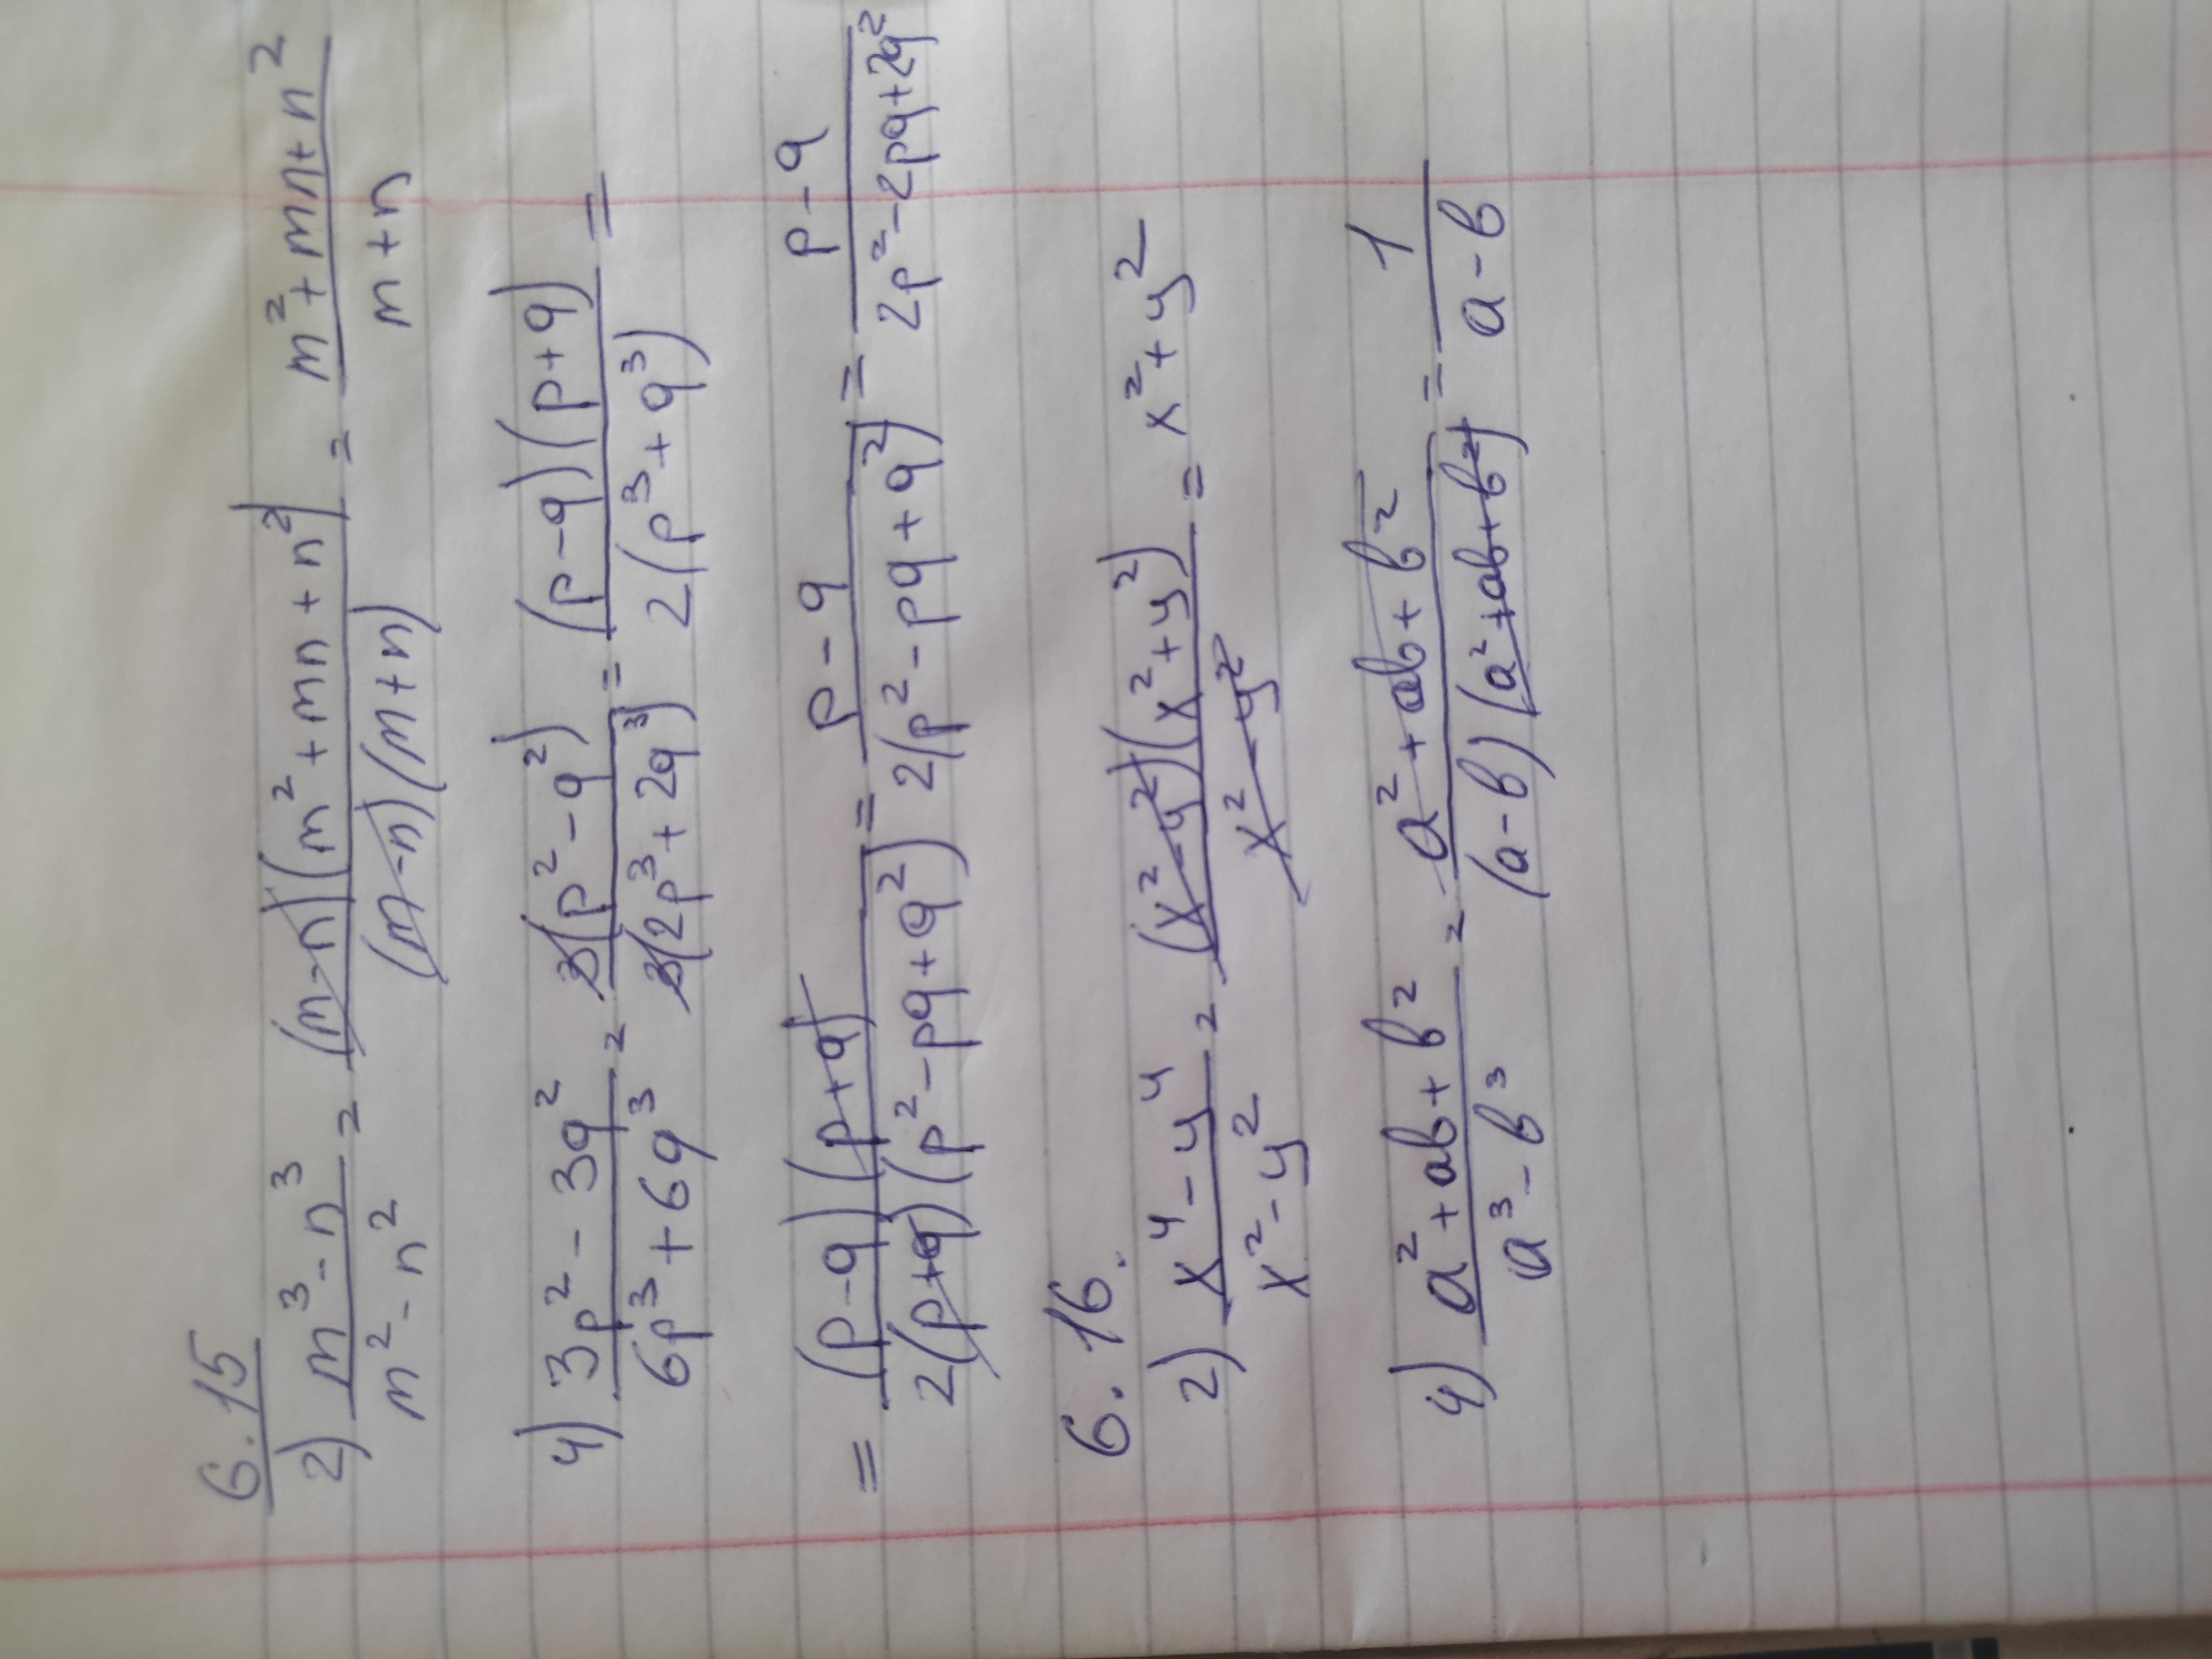 6.15
2) (m³-n³)/(m²-n²) = ((m-n)(m²+mn+n²))/((m-n)(m+n)) = (m²+mn+n²)/(m+n)
4) (3p²-3q²)/(6p³+6q³) = (3(p²-q²))/(3(2p³+2q³)) = ((p-q)(p+q))/(2(p³+q³)) =
= ((p-q)(p+q))/(2(p+q)(p²-pq+q²)) = (p-q)/(2(p²-pq+q²)) = (p-q)/(2p²-2pq+2q²)
6.16.
2) (x⁴-y⁴)/(x²-y²) = ((x²-y²)(x²+y²))/(x²-y²) = x²+y²
4) (a²+ab+b²)/(a³-b³) = (a²+ab+b²)/((a-b)(a²+ab+b²)) = 1/(a-b)